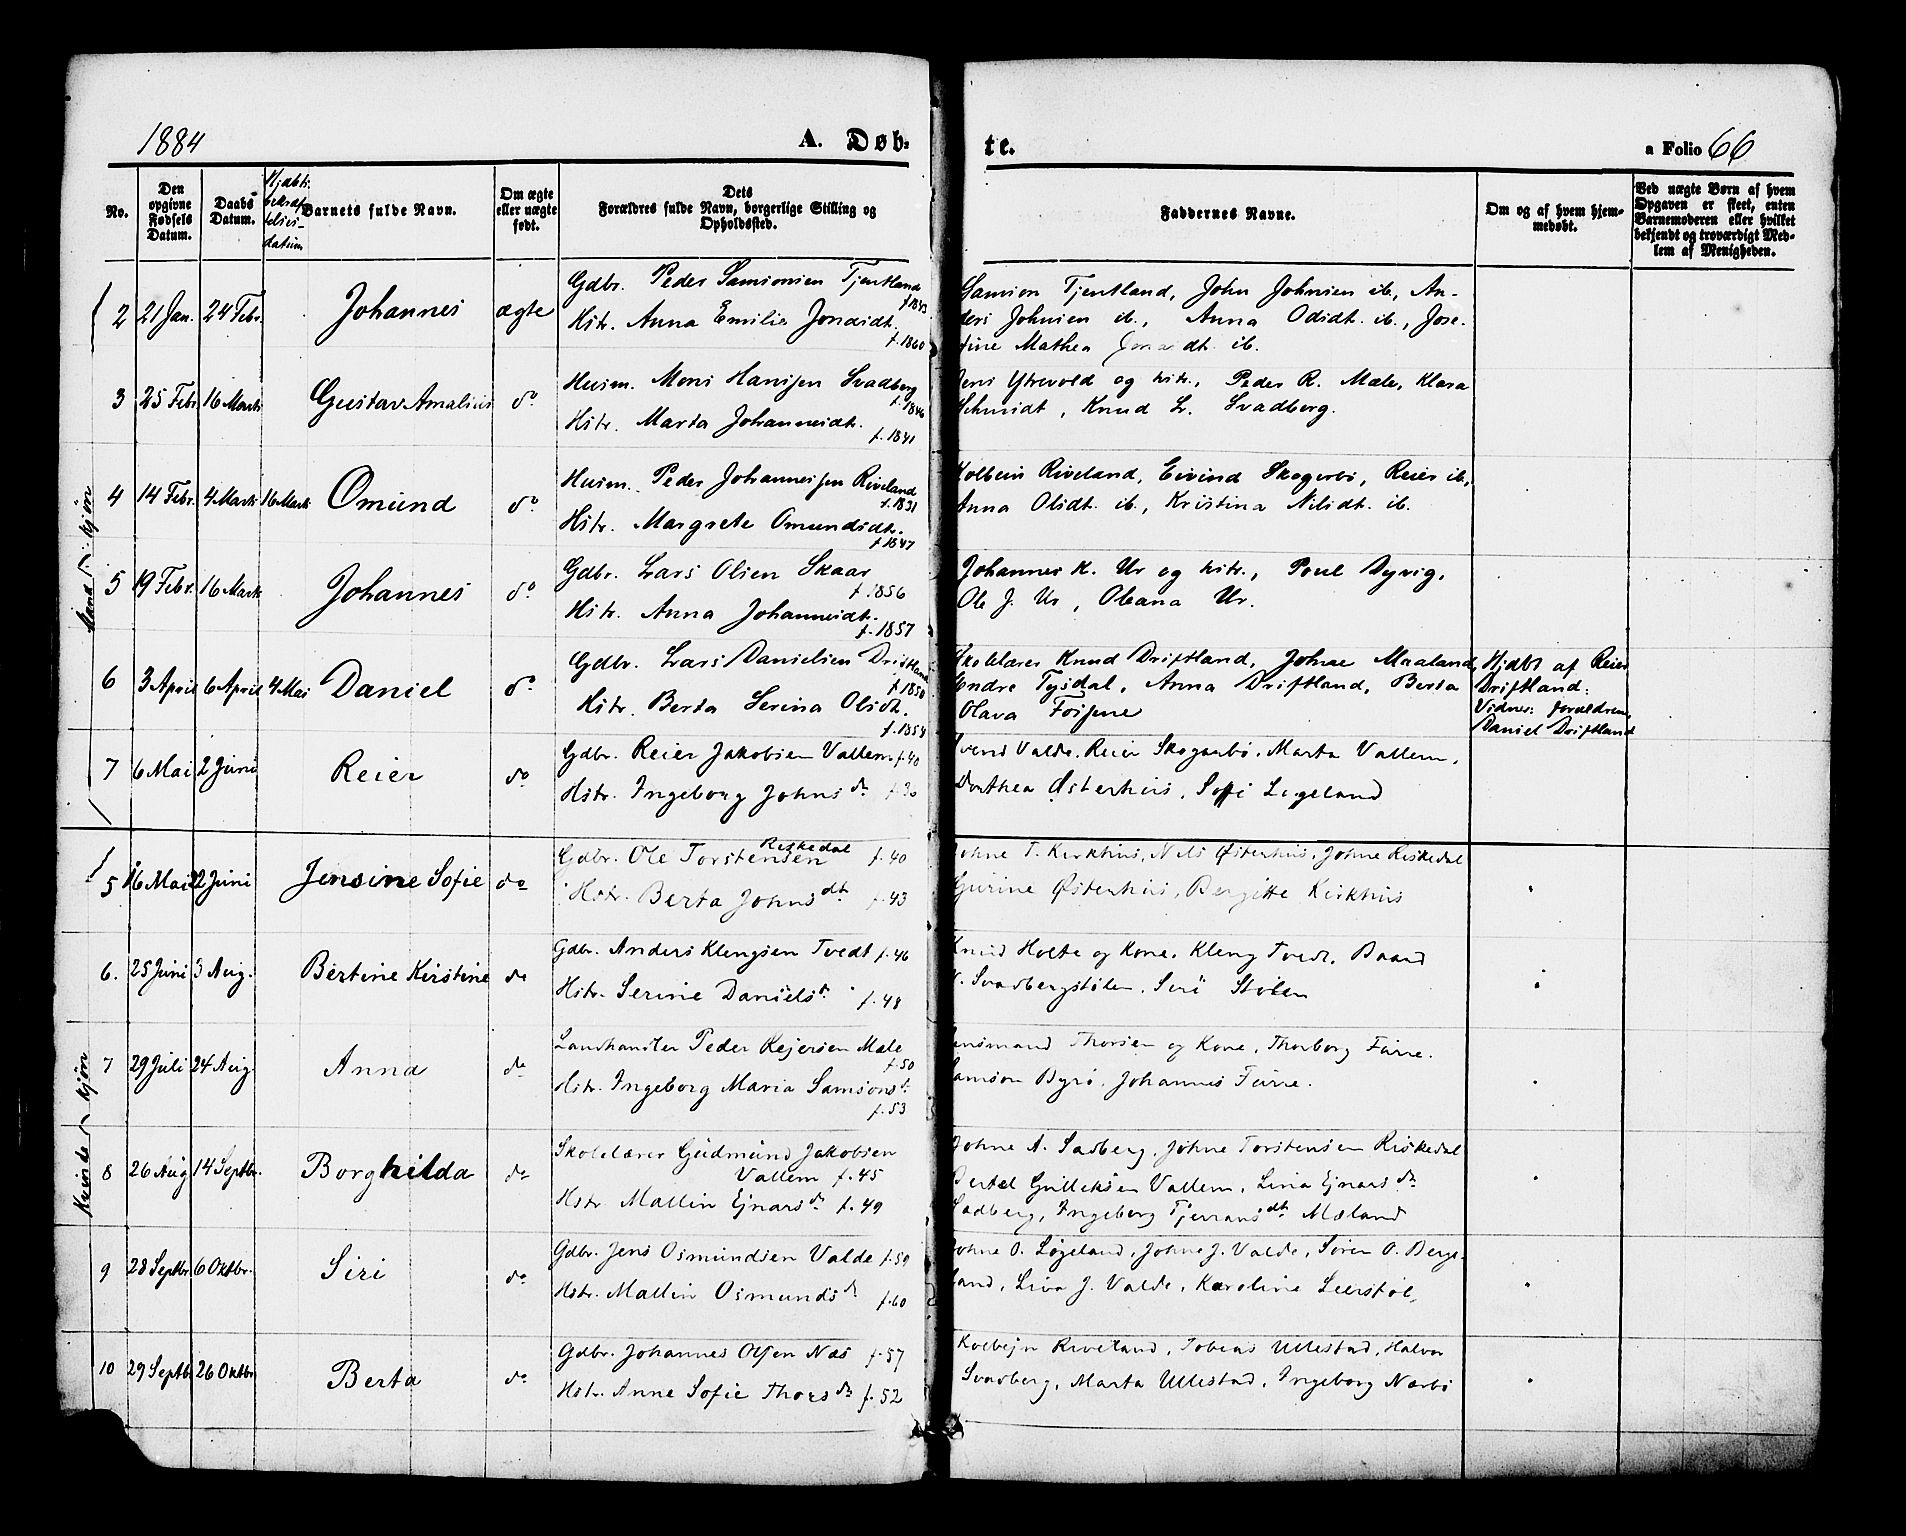 1884
A. Døb-
te.
a Folio 66
No.
Den opgivne Fødsels Datum.
Daabs Datum.
Hjdbts. bekræftelses-datum
Barnets fulde Navn.
Om ægte eller uægte født.
Dets Forældres fulde Navn, borgerlige Stilling og Opholdssted.
Faddernes Navne.
Om og af hvem hjemmedøbt.
Ved uægte Børn af hvem Opgaven er skeet, enten Barnemoderen eller hvilket bekjendt og troværdigt Medlem af Menigheden.
Mandkjøn
2 21 Jan. 24 Febr. Johannes ægte
Gdbr. Peder Samsonsen Tjentland f. 1843
Hstr. Anna Emilie Jonasdt. f. 1860
Samson Tjentland, John Johnsen ib., An-
ders Johnsen ib., Anna Olsdt. ib., Jose-
fine Mathea Jonasdt. ib.
3 25 Febr. 16 Marts Gustav Amalius do
Husm. Mons Hansen Svadberg f. 1846
Hstr. Marta Johannesdt. f. 1841
Jens Ytrevold og hstr., Peder R. Mæle, Klara
Schmidt, Knud L. Svadberg.
4 14 Febr. 4 Marts 16 Marts Omund do
Husm. Peder Johannessen Riveland f. 1831
Hstr. Margrete Omundsdtr. f. 1847
Kolbein Riveland, Eivind Skogerbø, Reier ib.,
Anna Olsdt. ib., Kristina Nilsdt. ib.
5 19 Febr. 16 Marts Johannes do
Gdbr. Lars Olsen Skaar f. 1856
Hstr. Anna Johannesdt. f. 1857
Johannes K. Ur og hstr., Poul Dyvig,
Ole J. Ur, Oleana Ur.
6 3 April 6 April 4 Mai Daniel do
Gdbr. Lars Danielsen Driftland f. 1850
Hstr. Berta Serina Olsdt. f. 1854
Skolelærer Knud Driftland, Johne Maaland,
Endre Tysdal, Anna Driftland, Berta
Olava Fossene
Hjdbt af Reier
Driftland:
Vidner: forældrene,
Daniel Driftland
7 6 Mai 2 Juni Reier do
Gdbr. Reier Jakobsen Vallem f. 40
Hstr. Ingeborg Johnsdr f. 36
Svend Valde, Reier Skogerbø, Marta Vallem,
Dorthea Østerhus, SofiLøgeland
Kvindekjøn
5 16 Mai 22 Juni Jensine Sofie do
Gdbr. Ole Torstensen Riskedal f. 40
Hstr. Berta Johnsdt f. 43
Johne T. Kirkhus, Nels Østerhus, Johne Riskedal
Gurine Østerhus, Bergitte Kirkhus
6. 25 Juni 3 Aug. Bertine Kirstine do
Gdbr. Anders Klengsen Tvedt f. 46
Hstr. Serine Danielsdr f. 48
Knud Holte og Kone, Kleng Tvedt, Baard
N. Svadbergstølen, Siri Stølen
7 29 Juli 24 Aug. Anna do
Landhandler Peder Rejersen Mæle f. 50
Hstr. Ingeborg Maria Samsonsdr f. 53
Lensmand Thorsen og Kone, Thorborg Furre.
Samson Byrø, Johannes Furre.
8 26 Aug 14 Septbr. Borghilda do
Skolelærer Gudmund Jakobsen
Vallem f. 45
Hstr. Mallin Ejnarsdr f. 49
Johne A. Sadberg, Johne Torstensen Riskedal
Bertel Gulleksen Vallem, Lina Ejnarsdr
Sadberg, Ingeborg Tjerransdt Mæland
9 28 Septbr. 6 Oktbr. Siri do
Gdbr. Jens Osmundsen Valde f. 59
Hstr. Mallin Osmundsdr f. 60
Johne O. Løgeland, Johne J. Valde, Søren O. Berge-
land, Liva J. Valde, Karoline Leerstøl,
10 29 Septbr 26 Oktbr Berta do
Gdbr. Johannes Olsen Næs f. 57
Hstr. Anne Sofie Thorsdr f. 52
Kolbejn Riveland, Tobias Ullestad, Halvor
Svadberg, Marta Ullestad, Ingeborg Nærbø